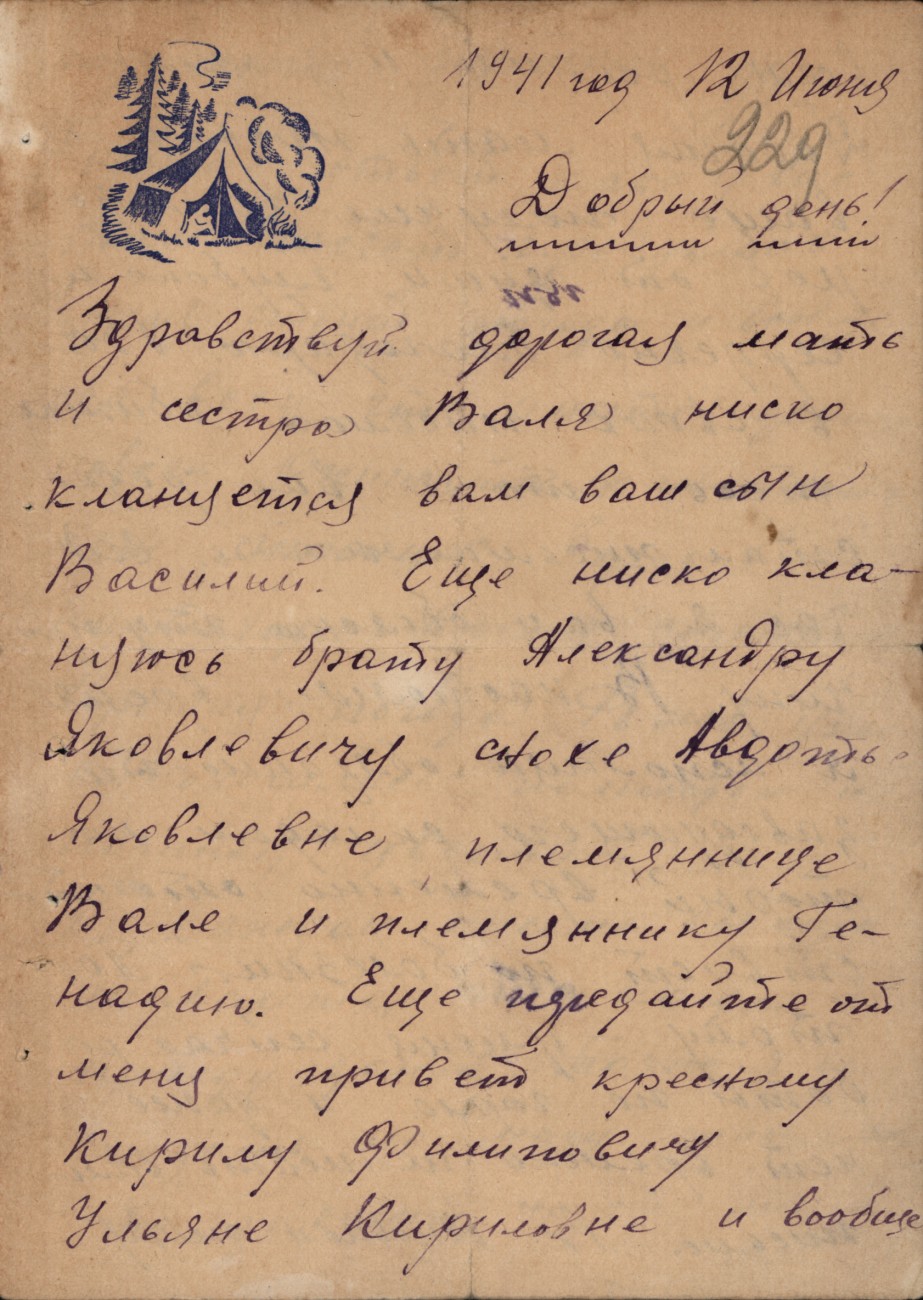 1941 год 12 Июня
229
Добрый день!
Здравствуй дорогая мать
и сестра Валя ниско
кланяется вам ваш сын
Василий. Еще ниско кла-
няюсь брату Александру
Яковлевичу снохе Авдоть
Яковлевне племяннице
Вале и племяннику Ге-
надию. Еще передайте от
меня привет кресному
Кирилу Филиповичу
Ульяне Кириловне и вообще